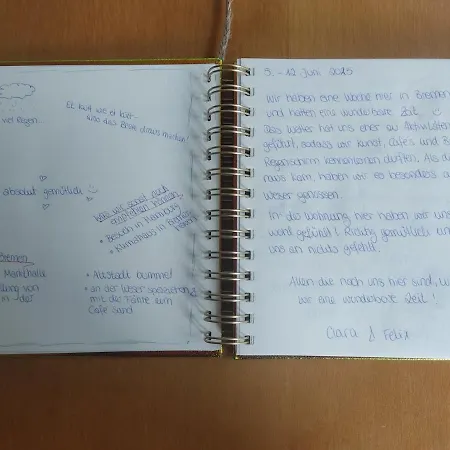 viel Regen...
Es kam wie es kam...
also das Beste draus machen!
absolut gemütlich
was wir sonst noch
empfehlen können:
• Besuch in Hamburg
• Klimahaus in
Bremen
Markthalle
von
in der
• Altstadt bummel
• an der Weser
mit der Fähre zum
Cafe Sand
5. - 12. Juni 2015
Wir haben eine Woche hier in Bremen
und hatten eine wunderbare Zeit.
Das Wetter hat uns eher zu Aktivitäten
geführt, sodass wir Kunst, Cafes und
Regenschirm kennenlernen durften. Als
raus kam, haben wir es besonders
Weser genossen.
In der Wohnung hier haben wir uns
wohl gefühlt! Richtig gemütlich
uns an nichts gefehlt.
Allen die nach uns hier sind,
wir eine wunderbare Zeit!
Clara & Felix